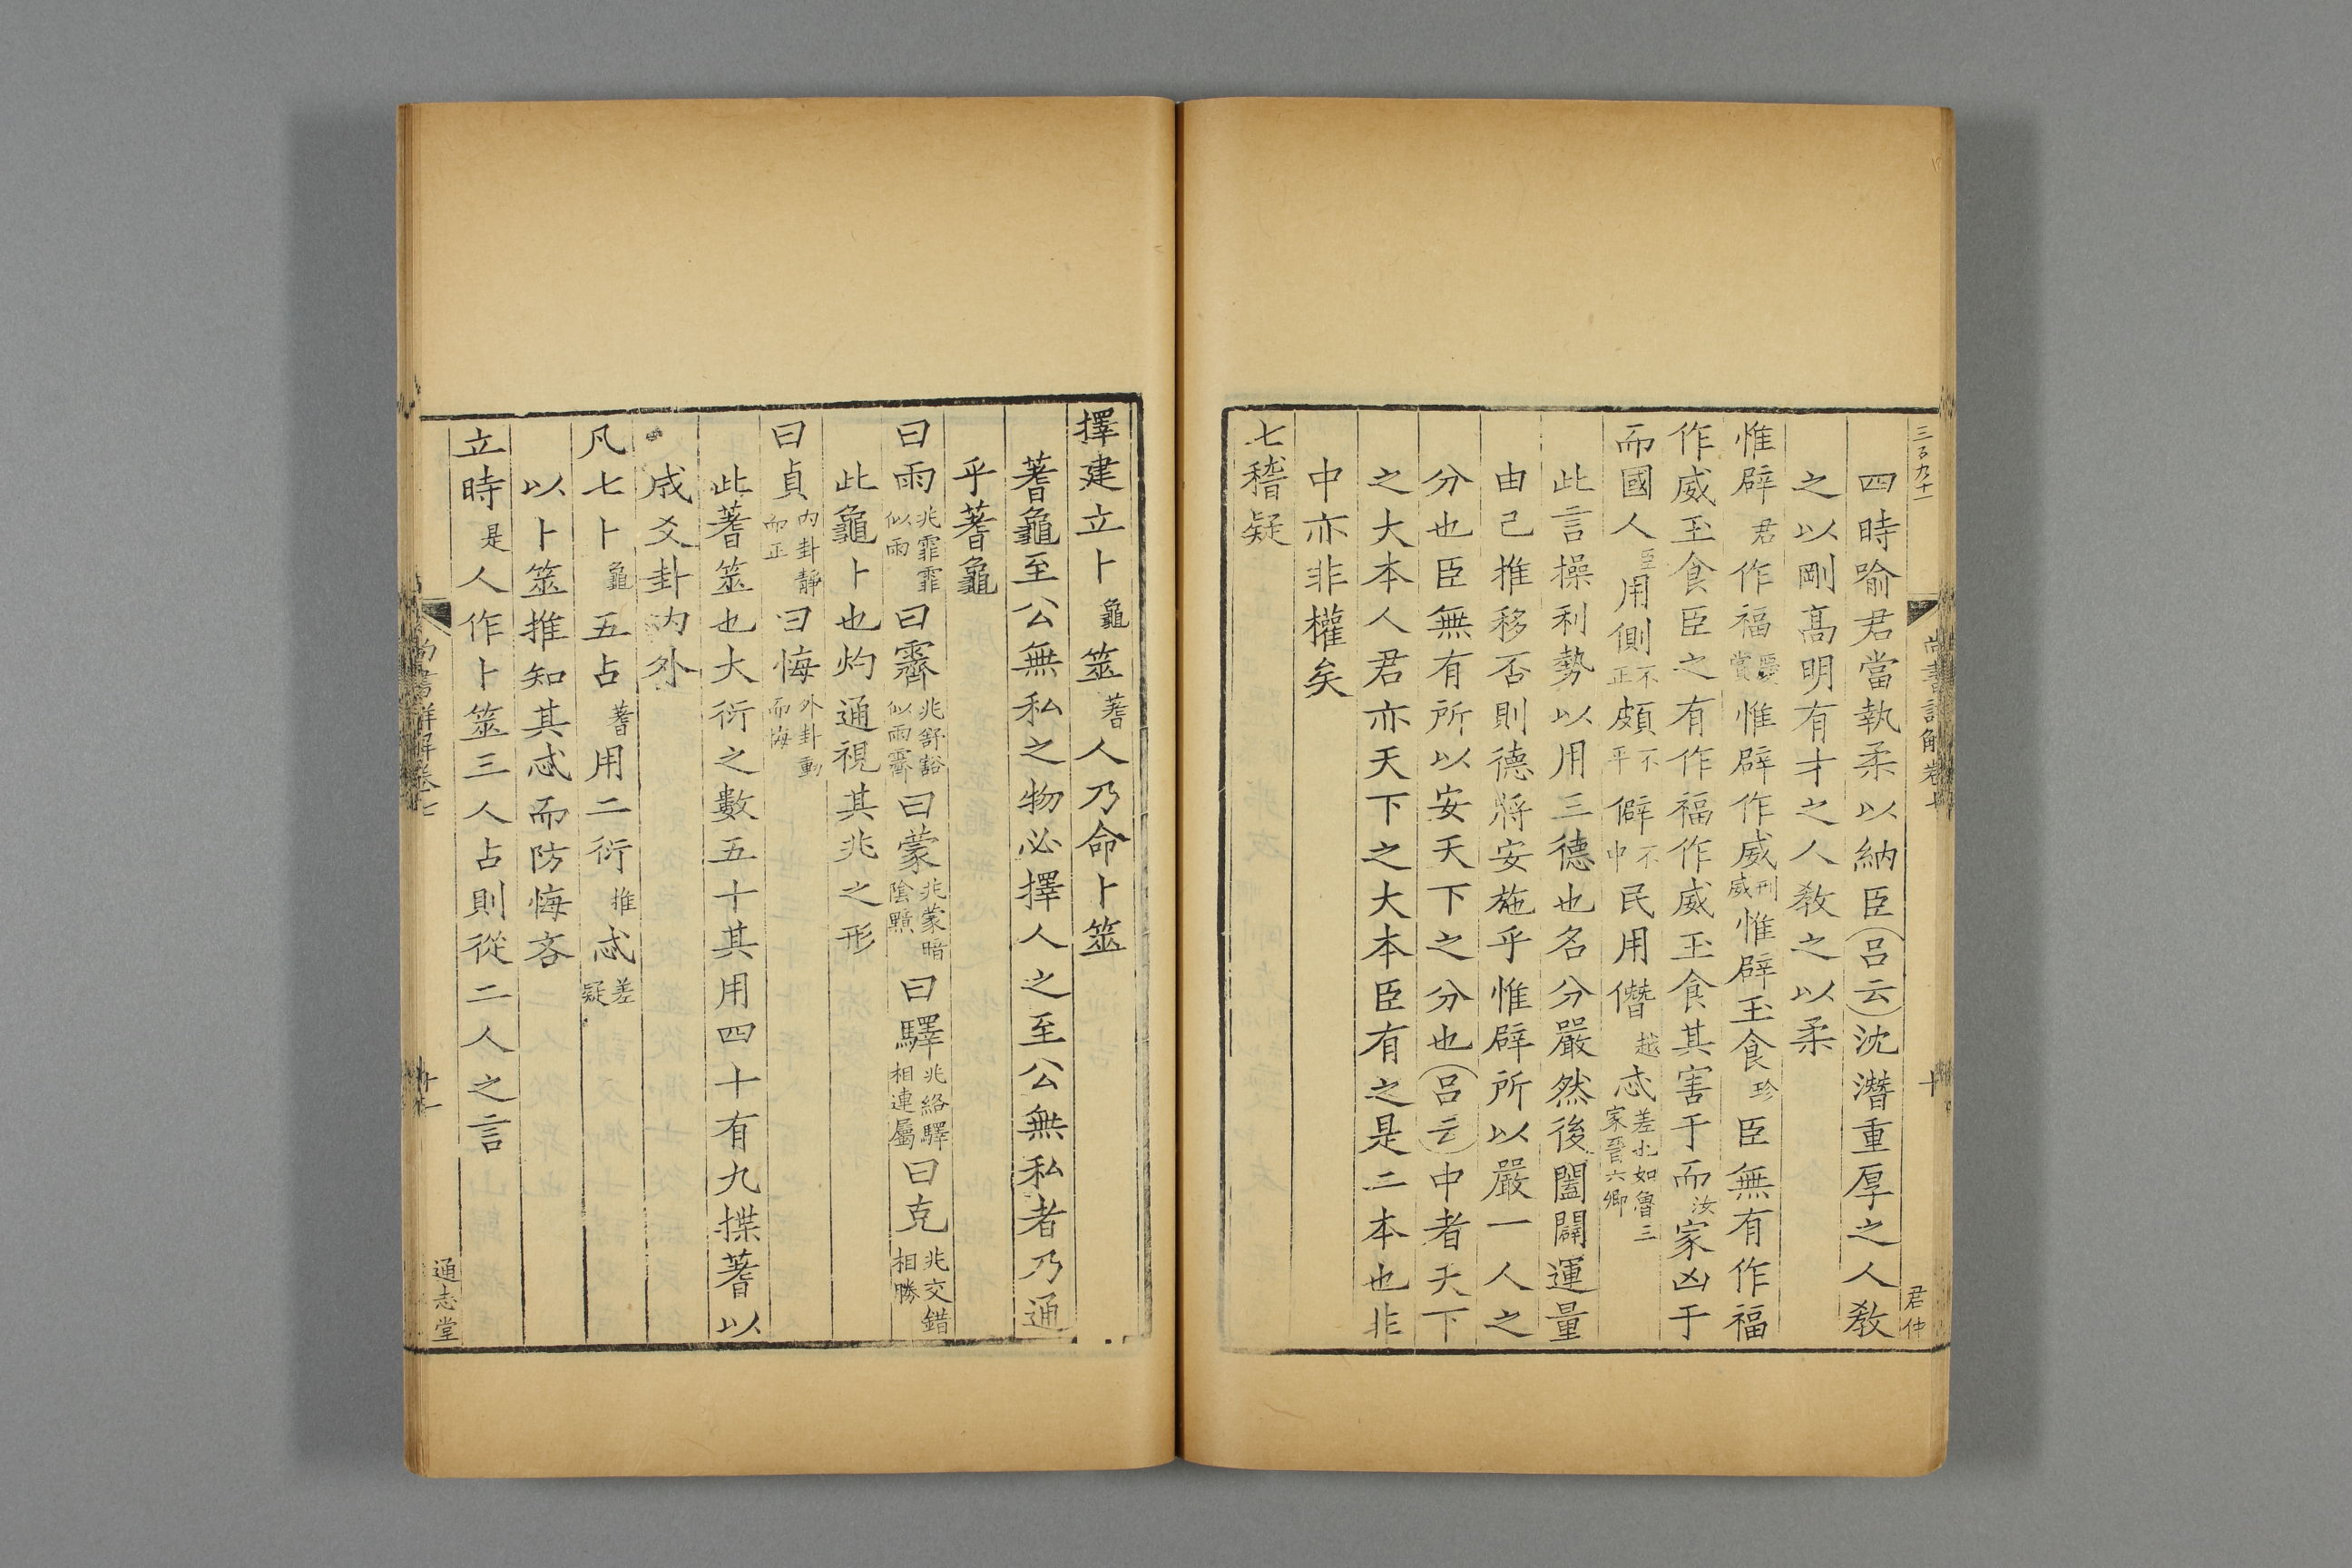 三百九十一
尚書詳解卷七
十
君仲
四時喻君當執柔以納臣吕云沈濳重厚之人敎
之以剛髙明有才之人敎之以柔
惟辟君作福慶賞惟辟作威刑威惟辟玉食珍臣無有作福
作威玉食臣之有作福作威玉食其害于而汝家凶于
而國人臣用側不正頗不平僻不中民用僭越忒差忒如魯三家晉六卿
此言操利勢以用三德也名分嚴然後闔闢運量
由己推移否則德將安施乎惟辟所以嚴一人之
分也臣無有所以安天下之分也吕云中者天下
之大本人君亦天下之大本臣有之是二本也非
中亦非權矣
七稽疑
擇建立卜龜筮蓍人乃命卜筮
蓍龜至公無私之物必擇人之至公無私者乃通
乎蓍龜
曰雨兆霏霏似雨曰霽兆舒豁似雨霽曰蒙兆蒙暗陰黷曰驛兆絡驛相連屬曰克兆交錯相勝
此龜卜也灼通視其兆之形
曰貞内卦靜而正曰悔外卦動而悔
此蓍筮也大衍之數五十其用四十有九揲蓍以
成爻卦内外
凡七卜龜五占蓍用二衍推忒差疑
以卜筮推知其忒而防悔吝
立時是人作卜筮三人占則從二人之言
尚書詳解卷七
十一
通志堂